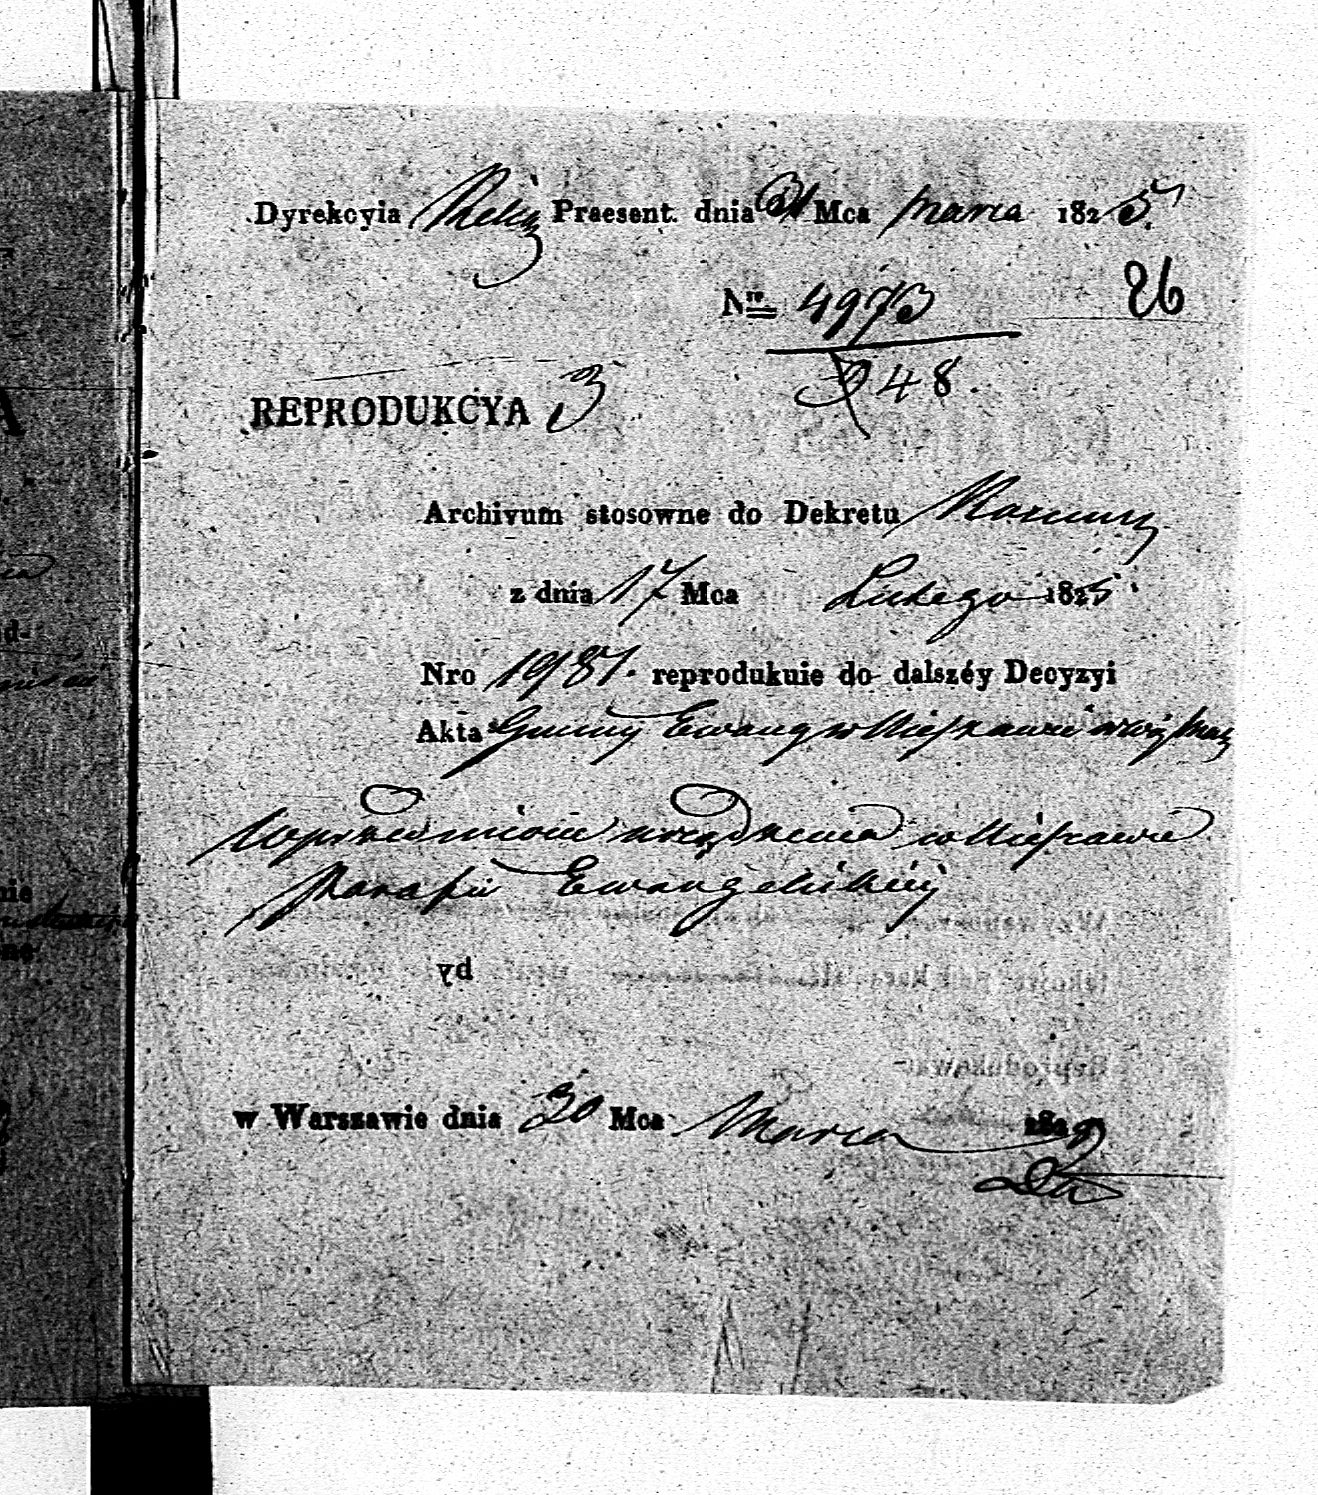 Dyrekcyia Relig Praesent. dnia 31 Mca Marca 1825.
Nro 4973
26
348.
REPRODUKCYA 3
Archivum stosowne do Dekretu
z dnia 17 Mca Lutego 1825
Nro 1987. reprodukuie do dalszéy Decyzyi
Akta Gminy Ewang w Mieszawie
urządzenia w Mieszawie
Parafii Ewangelickiéj
w Warszawie dnia 30 Mca Marca 182